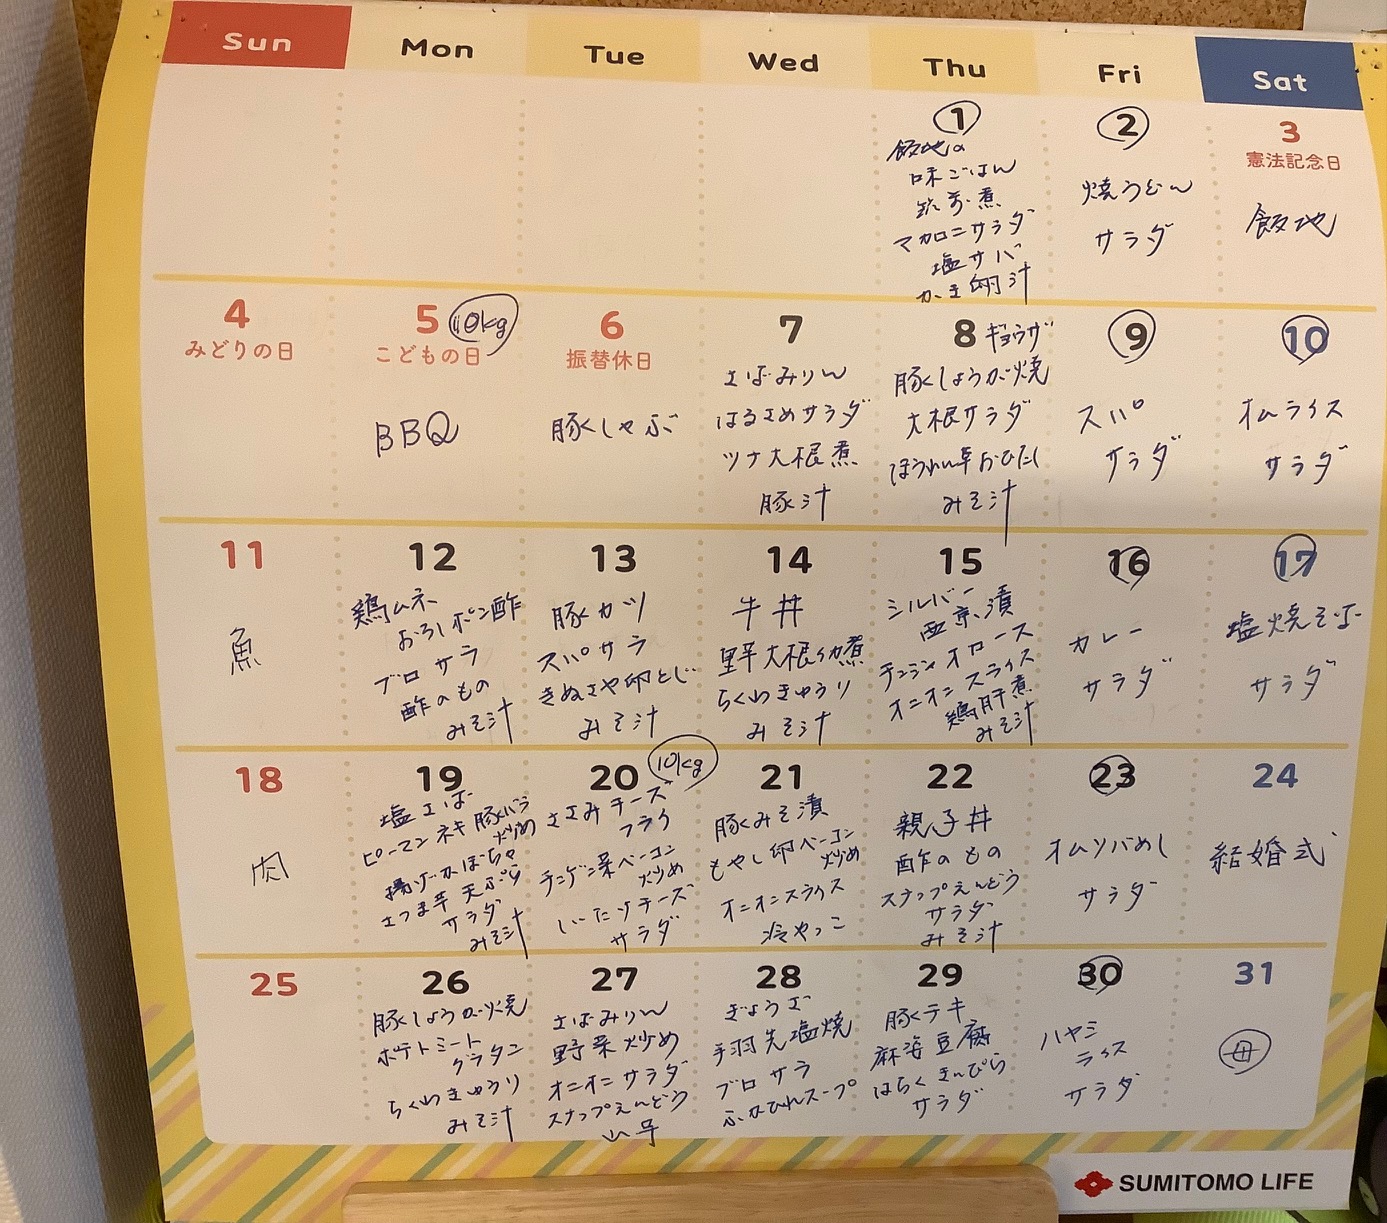 Sun Mon Tue Wed Thu Fri Sat
1
飯地の
味ごはん
筑前煮
マカロニサラダ
塩サバ
かき卵汁
2
焼うどん
サラダ
3
憲法記念日
飯地
4
みどりの日
5 10kg
こどもの日
BBQ
6
振替休日
豚しゃぶ
7
さばみりん
はるさめサラダ
ツナ大根煮
豚汁
8 ギョウザ
豚しょうが焼
大根サラダ
ほうれん草おひたし
みそ汁
9
スパ
サラダ
10
オムライス
サラダ
11
魚
12
鶏ムネ
おろしポン酢
ブロサラ
酢のもの
みそ汁
13
豚カツ
スパサラ
きぬさや卵とじ
みそ汁
14
牛丼
大根
煮
ちくわきゅうり
みそ汁
15
シルバー
西京漬
チンジャオロース
オニオンスライス
鶏肝煮
みそ汁
16
カレー
サラダ
17
塩焼そば
サラダ
18
肉
19
塩さば
ピーマンネギ豚バラ
炒め
揚げかぼちゃ
さつま芋天ぷら
サラダ
みそ汁
20 10kg
ささみチーズ
フライ
チンゲン菜ベーコン
炒め
しいたけチーズ
サラダ
21
豚みそ漬
もやし卵ベーコン
炒め
オニオンスライス
冷やっこ
22
親子丼
酢のもの
スナップえんどう
サラダ
みそ汁
23
オムソバめし
サラダ
24
結婚式
25
26
豚しょうが焼
ポテトミート
グラタン
ちくわきゅうり
みそ汁
27
さばみりん
野菜炒め
オニオンサラダ
スナップえんどう
28
ぎょうざ
手羽先塩焼
ブロサラ
ふかひれスープ
29
豚テキ
麻婆豆腐
きんぴら
サラダ
30
ハヤシ
ライス
サラダ
31
母
SUMITOMO LIFE